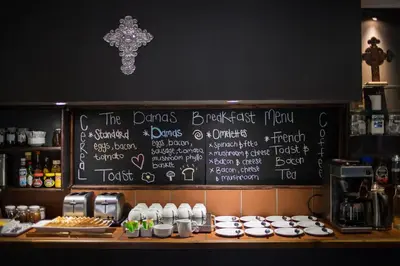 The Damas Breakfast Menu
Cereal
*Standard
egg's, bacon
tomato
Toast
*Damas
egg's, bacon,
sausage, tomato
mushroom phyllo
basket
*Omelettes
*spinach & feta
*mushroom & cheese
*bacon & cheese
*Bacon, cheese
& mushroom
*French
Toast &
Bacon
Tea
Coffee